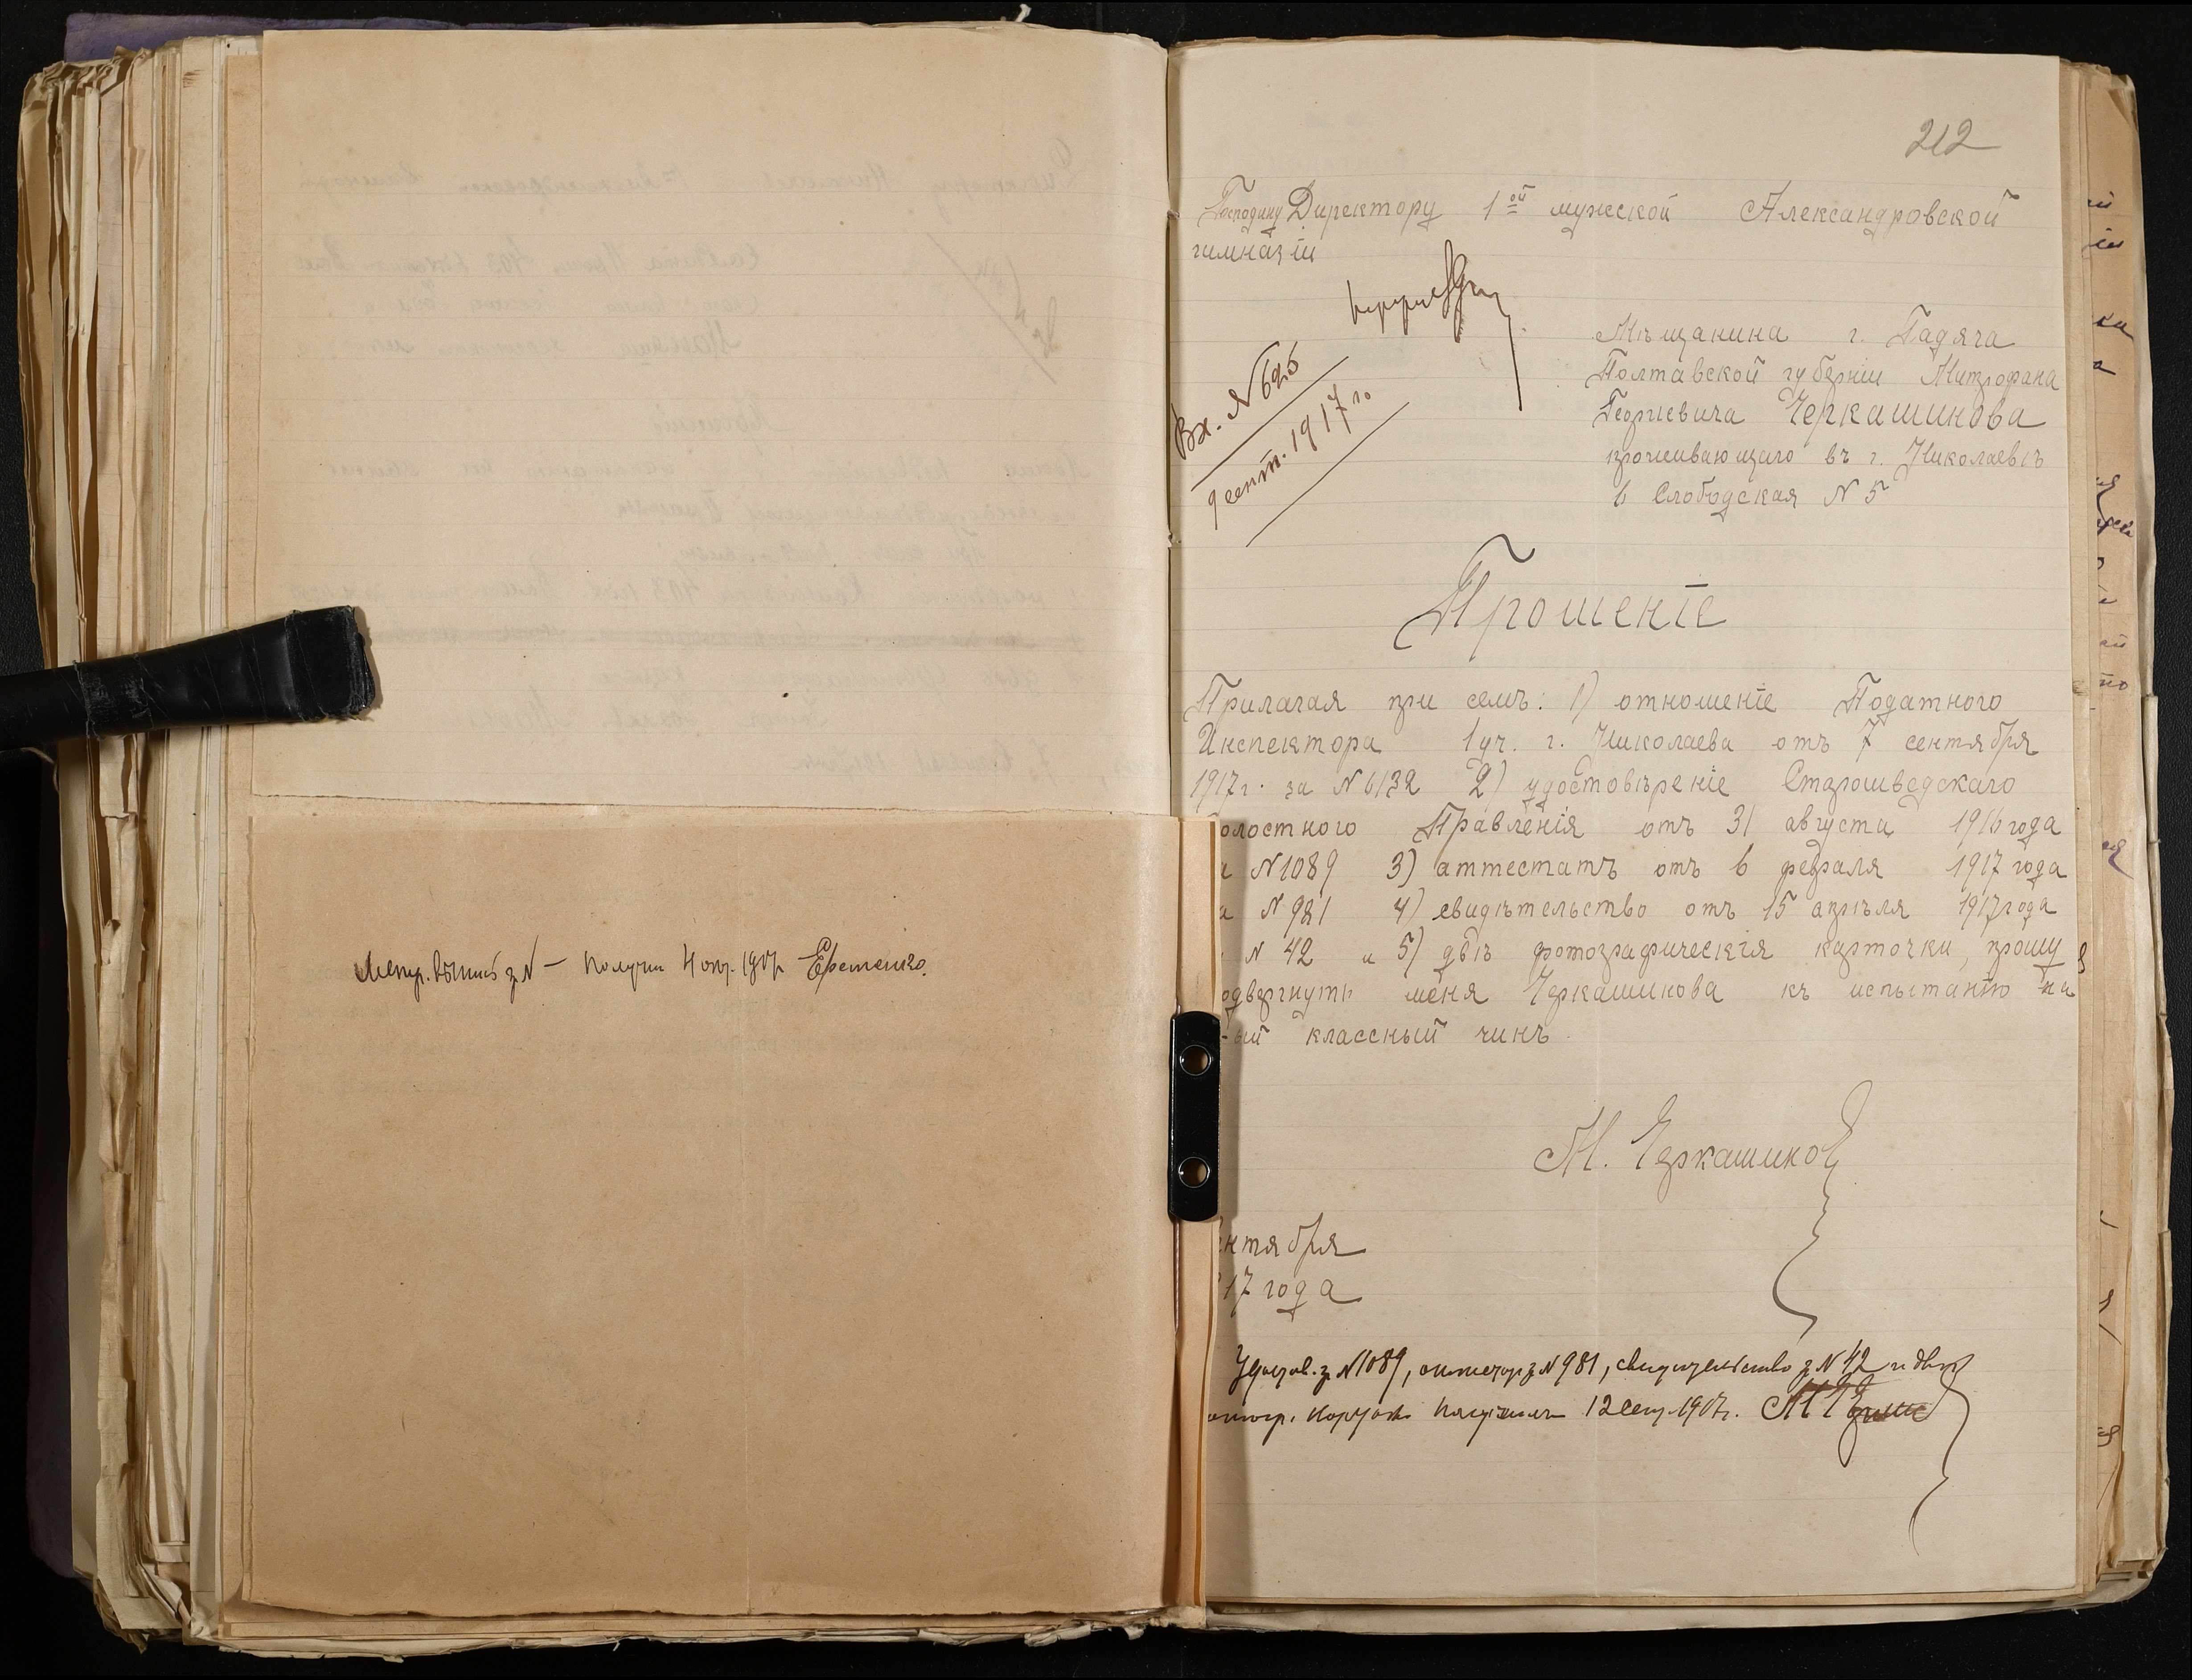 Метр. выпись з N — получил 4 окт. 1917 Еременко.
212
Господину Директору 1ой мужской Александровской
гимназіи
Вх. N 625
9 сент. 1917 го
Мѣщанина г. Гадяча
Полтавской губерніи Митрофана
Георгіевича Черкашинова
проживающаго въ г. Николаевѣ
6 Слободская N 5
Прошеніе
Прилагая при семъ: 1) отношеніе Податного
Инспектора 1 уч. г. Николаева отъ 7 сентября
1917 г. за N 6132 2) удостовѣреніе Старошведскаго
олостного Правленія отъ 31 августа 1916 года
а N 1089 3) аттестатъ отъ 6 февраля 1917 года
а N 981 4) свидѣтельство отъ 15 апрѣля 1917 года
N 42 и 5) двѣ фотографическія карточки, прошу
одвергнуть меня Черкашинова къ испытанію на
-ый классный чинъ.
М. Черкашинов
ентября
17 года
Удостов. з N 1089, аттестат з N 981, свидѣтельство з N 42 и двѣ
фотогр. карточ. получилъ 12 сент. 1917 г.